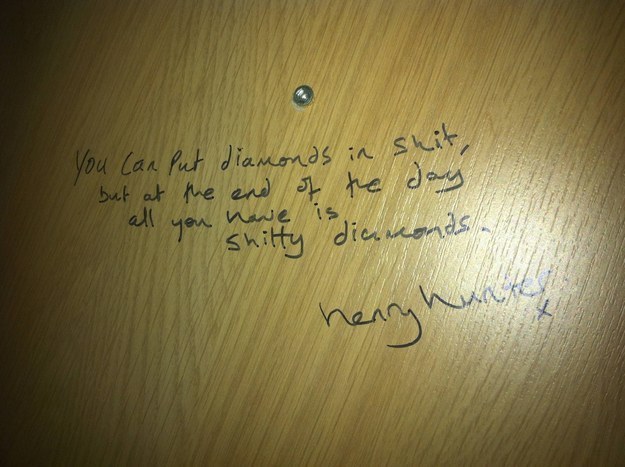 You Can Put diamonds in Shit,
but at the end of the day
all you have is
shitty diamonds.
henry hunter
x